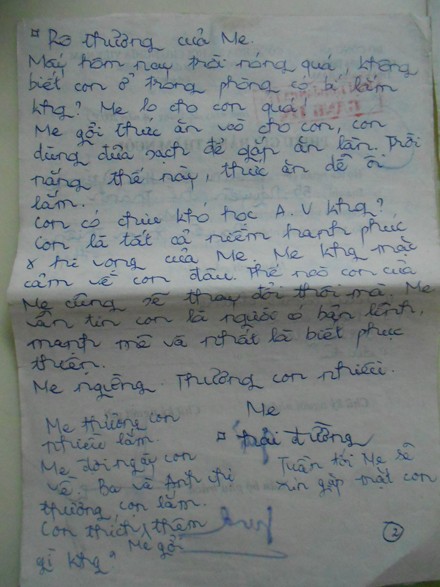 ¤ Bo thương của Mẹ.
Mấy hôm nay trời nóng quá, không
biết con ở trong phòng có bí lắm
khg? Mẹ lo cho con quá!
Mẹ gởi thức ăn vô cho con, con
dùng đũa sạch để gắp ăn lần. Trời
nắng thế này, thức ăn dễ ôi
lắm.
Con có chịu khó học A.V khg?
Con là tất cả niềm hạnh phúc
& hi vọng của Mẹ. Mẹ khg mặc
cảm về con đâu. Thế nào con của
Mẹ cũng sẽ thay đổi thôi mà. Mẹ
vẫn tin con là người có bản lĩnh,
mạnh mẽ và nhất là biết phục
thiện.
Mẹ ngừng. Thương con nhiều.
Mẹ
Mẹ thương con
nhiều lắm.
Mẹ đợi ngày con
về. Ba và anh chị
thương con lắm.
Con thích thêm
gì khg Mẹ gởi
Tuần tới Mẹ sẽ
xin gặp mặt con
2